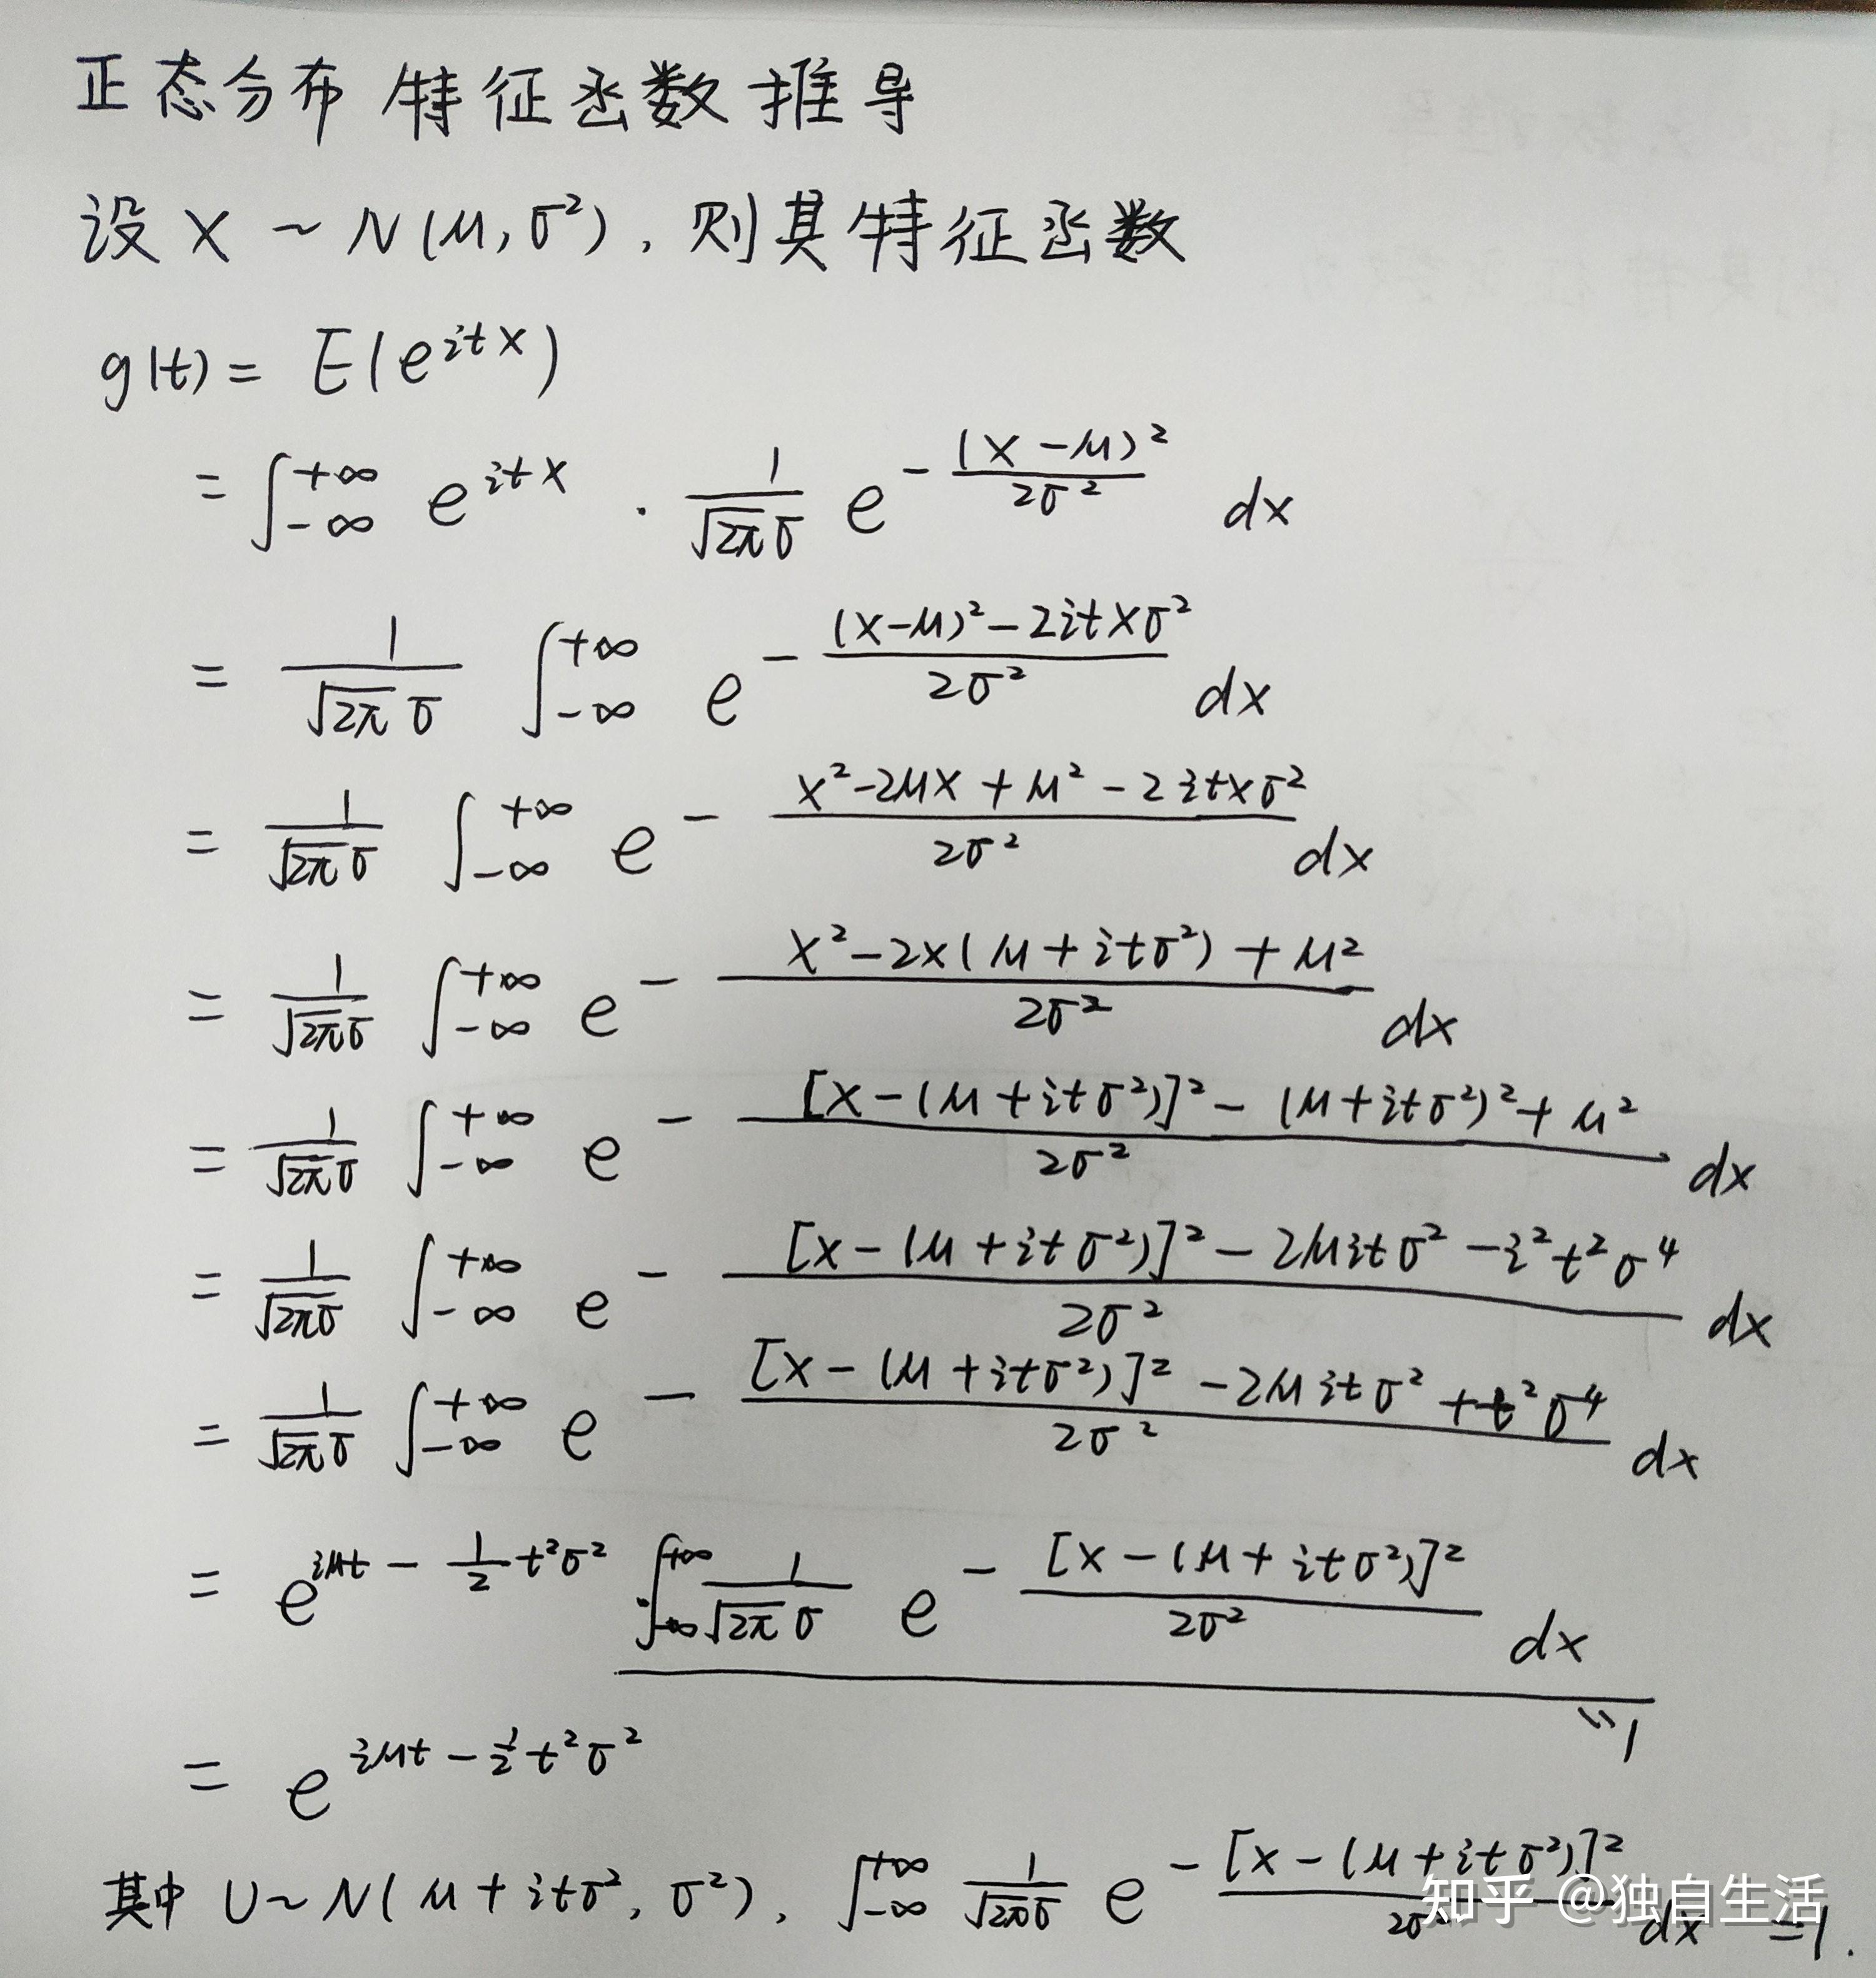 正态分布 特征函数推导
设 X ~ N(μ, σ²), 则其特征函数
g(t) = E(e^{itX})
= ∫_{-∞}^{+∞} e^{itx} · \frac{1}{\sqrt{2π}σ} e^{-\frac{(x-μ)²}{2σ²}} dx
= \frac{1}{\sqrt{2π}σ} ∫_{-∞}^{+∞} e^{-\frac{(x-μ)²-2itxσ²}{2σ²}} dx
= \frac{1}{\sqrt{2π}σ} ∫_{-∞}^{+∞} e^{-\frac{x²-2μx+μ²-2itxσ²}{2σ²}} dx
= \frac{1}{\sqrt{2π}σ} ∫_{-∞}^{+∞} e^{-\frac{x²-2x(μ+itσ²)+μ²}{2σ²}} dx
= \frac{1}{\sqrt{2π}σ} ∫_{-∞}^{+∞} e^{-\frac{[x-(μ+itσ²)]²-(μ+itσ²)²+μ²}{2σ²}} dx
= \frac{1}{\sqrt{2π}σ} ∫_{-∞}^{+∞} e^{-\frac{[x-(μ+itσ²)]²-2μitσ²-i²t²σ⁴}{2σ²}} dx
= \frac{1}{\sqrt{2π}σ} ∫_{-∞}^{+∞} e^{-\frac{[x-(μ+itσ²)]²-2μitσ²+t²σ⁴}{2σ²}} dx
= e^{iμt-\frac{1}{2}t²σ²} ∫_{-∞}^{+∞} \frac{1}{\sqrt{2π}σ} e^{-\frac{[x-(μ+itσ²)]²}{2σ²}} dx
=1
= e^{iμt-\frac{1}{2}t²σ²}
其中 U~N(μ+itσ², σ²), ∫_{-∞}^{+∞} \frac{1}{\sqrt{2π}σ} e^{-\frac{[x-(μ+itσ²)]²}{2σ²}} dx =1.
知乎 @独自生活